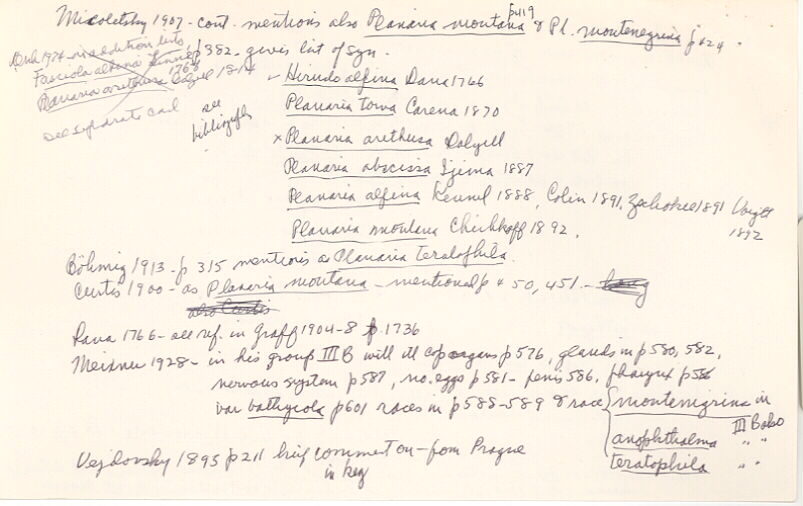 Micoletsky 1907 - cont. mentions also Planaria montana p419 & Pl. montenegrina p424.
p382. gives list of syn.
Fasciola alpina Linné
1766
Planaria arethusa Dalyell 1814
see separate card
see bibliogrfs
Hirudo alpina Dana 1766
Planaria torva Carena 1870
x Planaria arethusa Dalyell
Planaria abscissa Ijima 1887
Planaria alpina Kennel 1888, Colin 1891, Zschokke 1891 Voigt 1892
Planaria montana Chichkoff 1892.
Böhmig 1913 - p 315 mentions as Planaria teratophila.
Curtis 1900 - as Planaria montana - mentional p 450, 451 -
also Curtis
Dana 1766 - see ref. in Graff 1904-8 p. 1736
Meixner 1928 - in his group III B with ill cop organs p576, glands in p580, 582,
nervous system p587, no. eggs p581 - penis 586, pharynx p586
var bathycola p601 races in p588-589 & race { montenegrina in III B also
anophthalma " "
teratophila " "
Vejdovsky 1895 p211 brief comment on - from Prague
in key